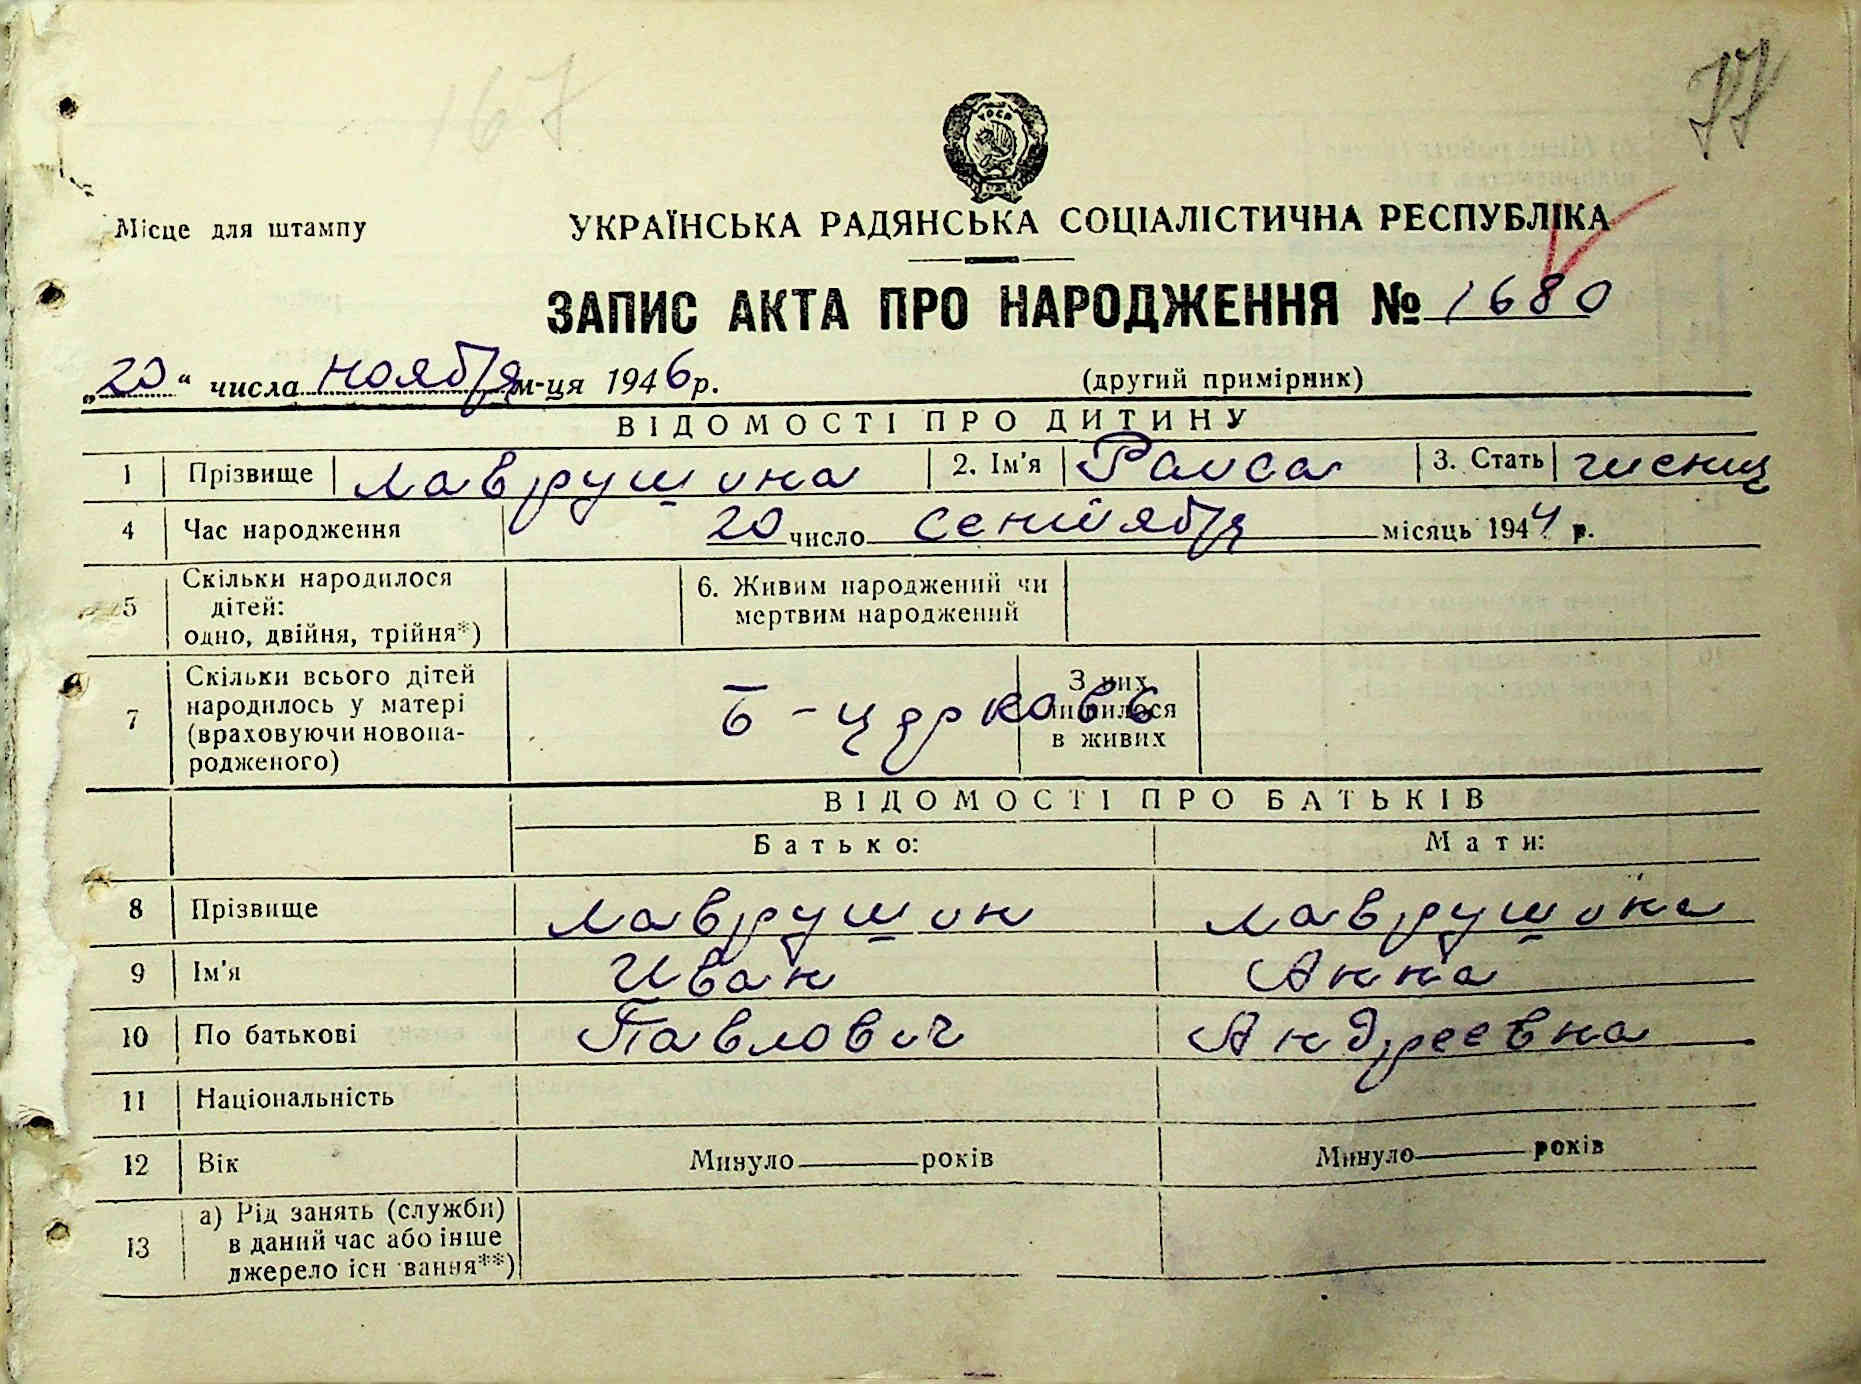 167
77
УРСР
Місце для штампу
УКРАЇНСЬКА РАДЯНСЬКА СОЦІАЛІСТИЧНА РЕСПУБЛІКА
ЗАПИС АКТА ПРО НАРОДЖЕННЯ № 1680
„20“ числа ноября м-ця 1946 р. (другий примірник)
ВІДОМОСТІ ПРО ДИТИНУ
1 Прізвище Лаврушина 2. Ім'я Раиса 3. Стать женщ
4 Час народження 20 число сентября місяць 1944 р.
5 Скільки народилося дітей: одно, двійня, трійня*) 6. Живим народжений чи мертвим народжений
7 Скільки всього дітей народилось у матері (враховуючи новонародженого) Б-церковь З них лишилося в живих
ВІДОМОСТІ ПРО БАТЬКІВ
Батько: Мати:
8 Прізвище Лаврушин Лаврушина
9 Ім'я Иван Анна
10 По батькові Павлович Андреевна
11 Національність
12 Вік Минуло років Минуло років
13 а) Рід занять (служби) в даний час або інше джерело існ вання**)